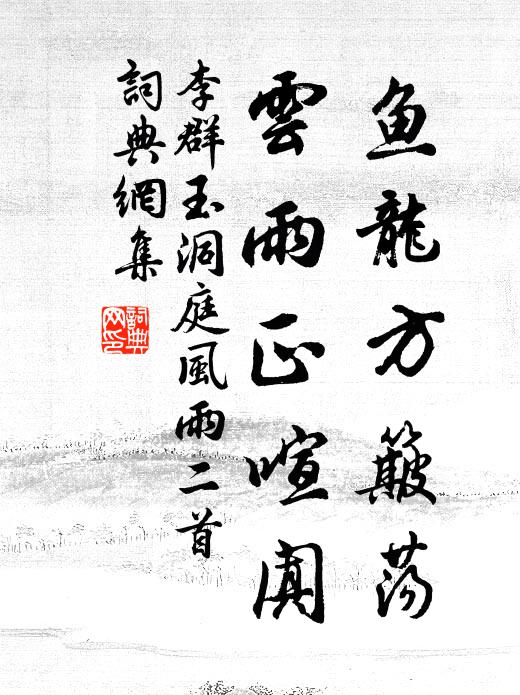 鱼龍方簸蕩
雲雨正喧闐
李群玉洞庭風雨二首
詞典網集
詞典网印